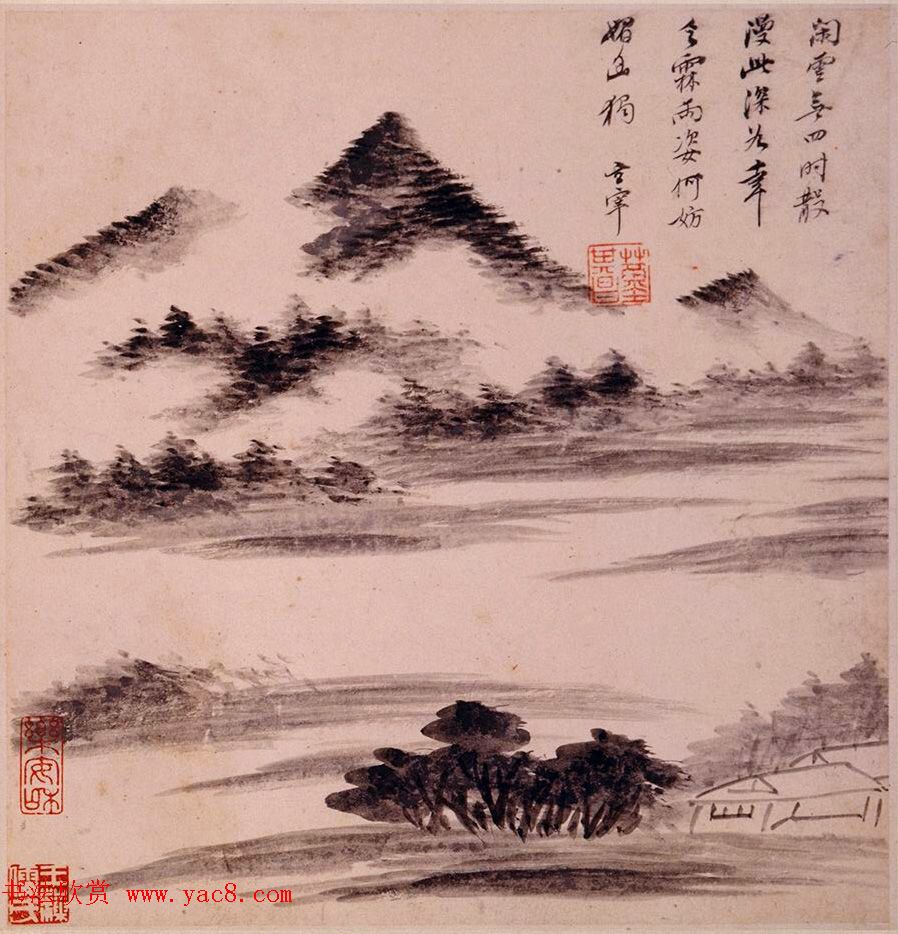 閑雲無四時散
漫此深谷幸
乏霖雨姿何妨
媚幽獨 玄宰
书法欣赏 www.yac8.com